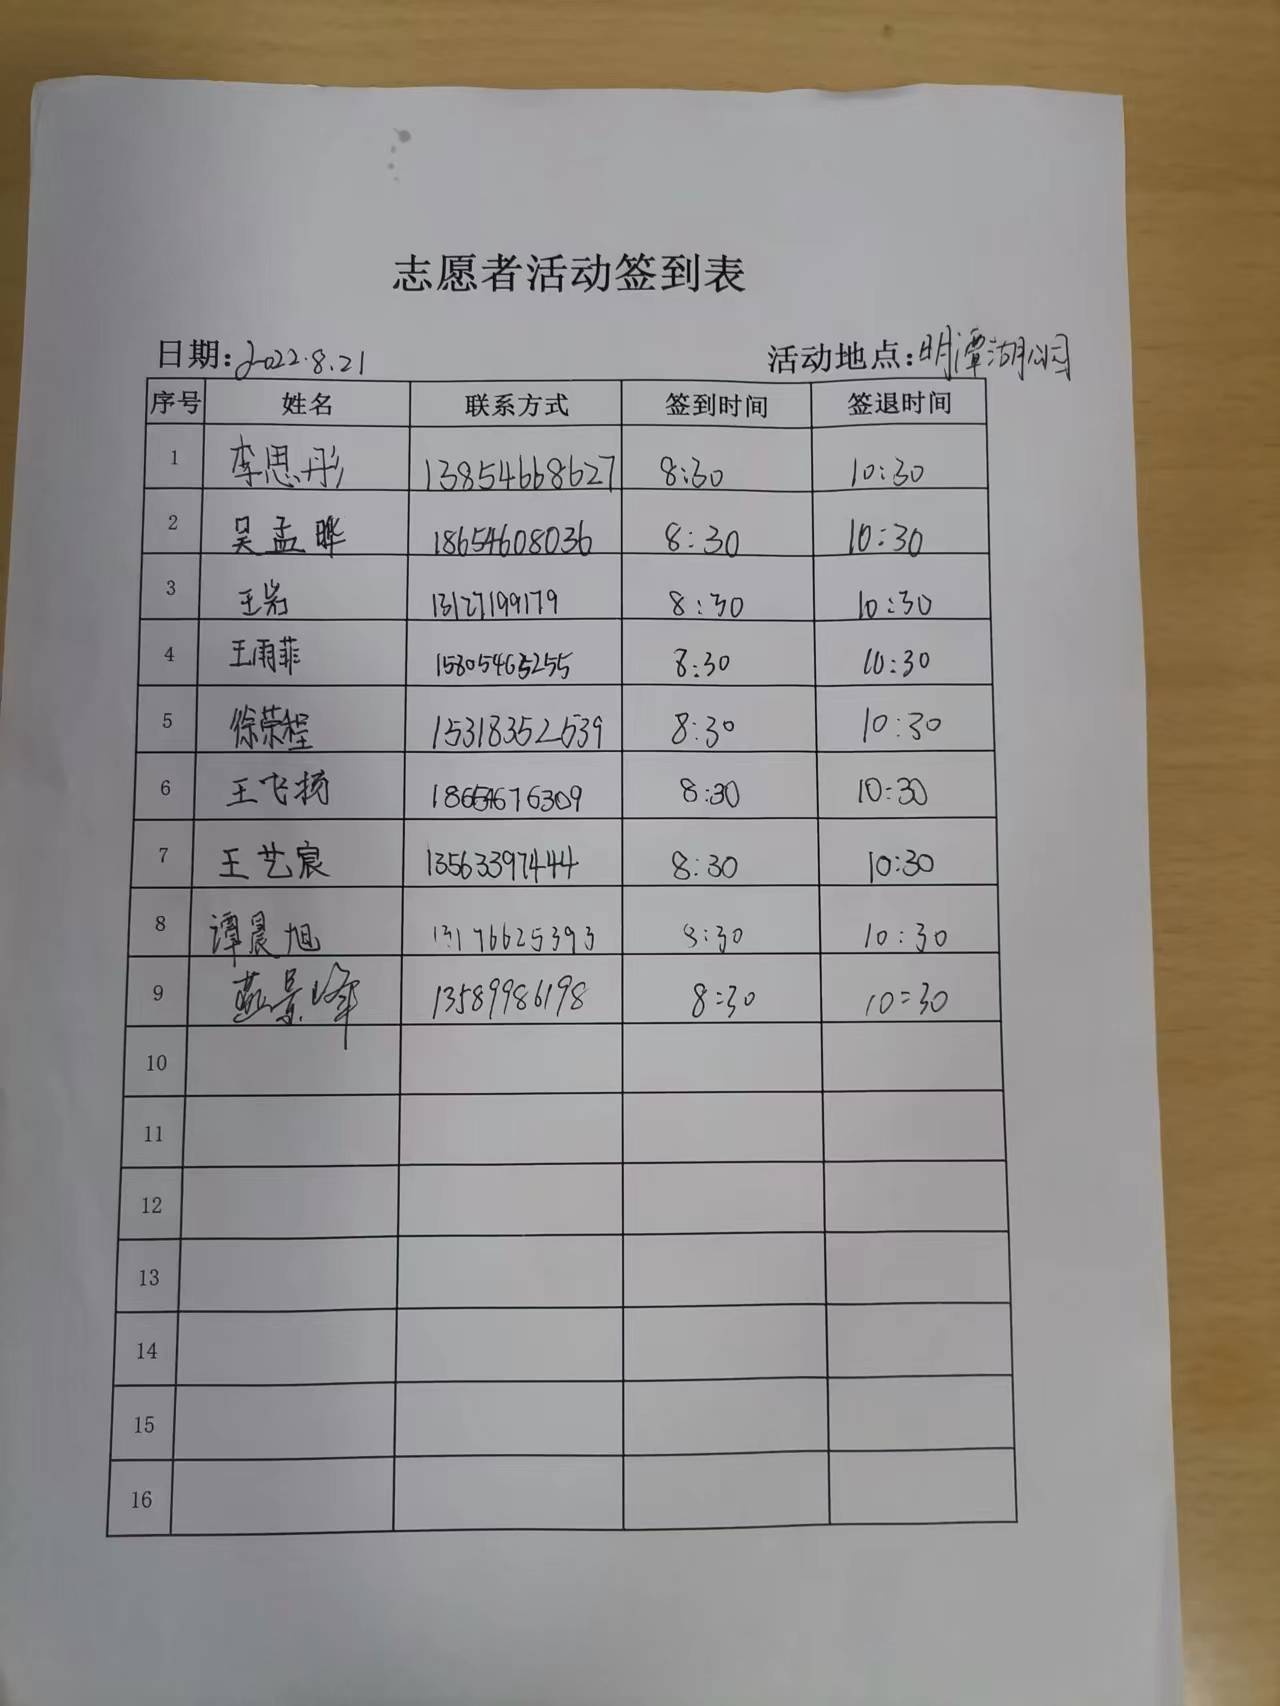 志愿者活动签到表
日期:2022.8.21 活动地点:明潭湖公园
序号 姓名 联系方式 签到时间 签退时间
1 李思彤 13854668627 8:30 10:30
2 吴孟晔 18654608036 8:30 10:30
3 王岩 13127199179 8:30 10:30
4 王雨菲 15805463255 8:30 10:30
5 徐荣程 15318352539 8:30 10:30
6 王飞扬 18654676309 8:30 10:30
7 王艺宸 13563397444 8:30 10:30
8 谭晨旭 13176625393 8:30 10:30
9 燕景峰 13589986198 8:30 10:30
10
11
12
13
14
15
16